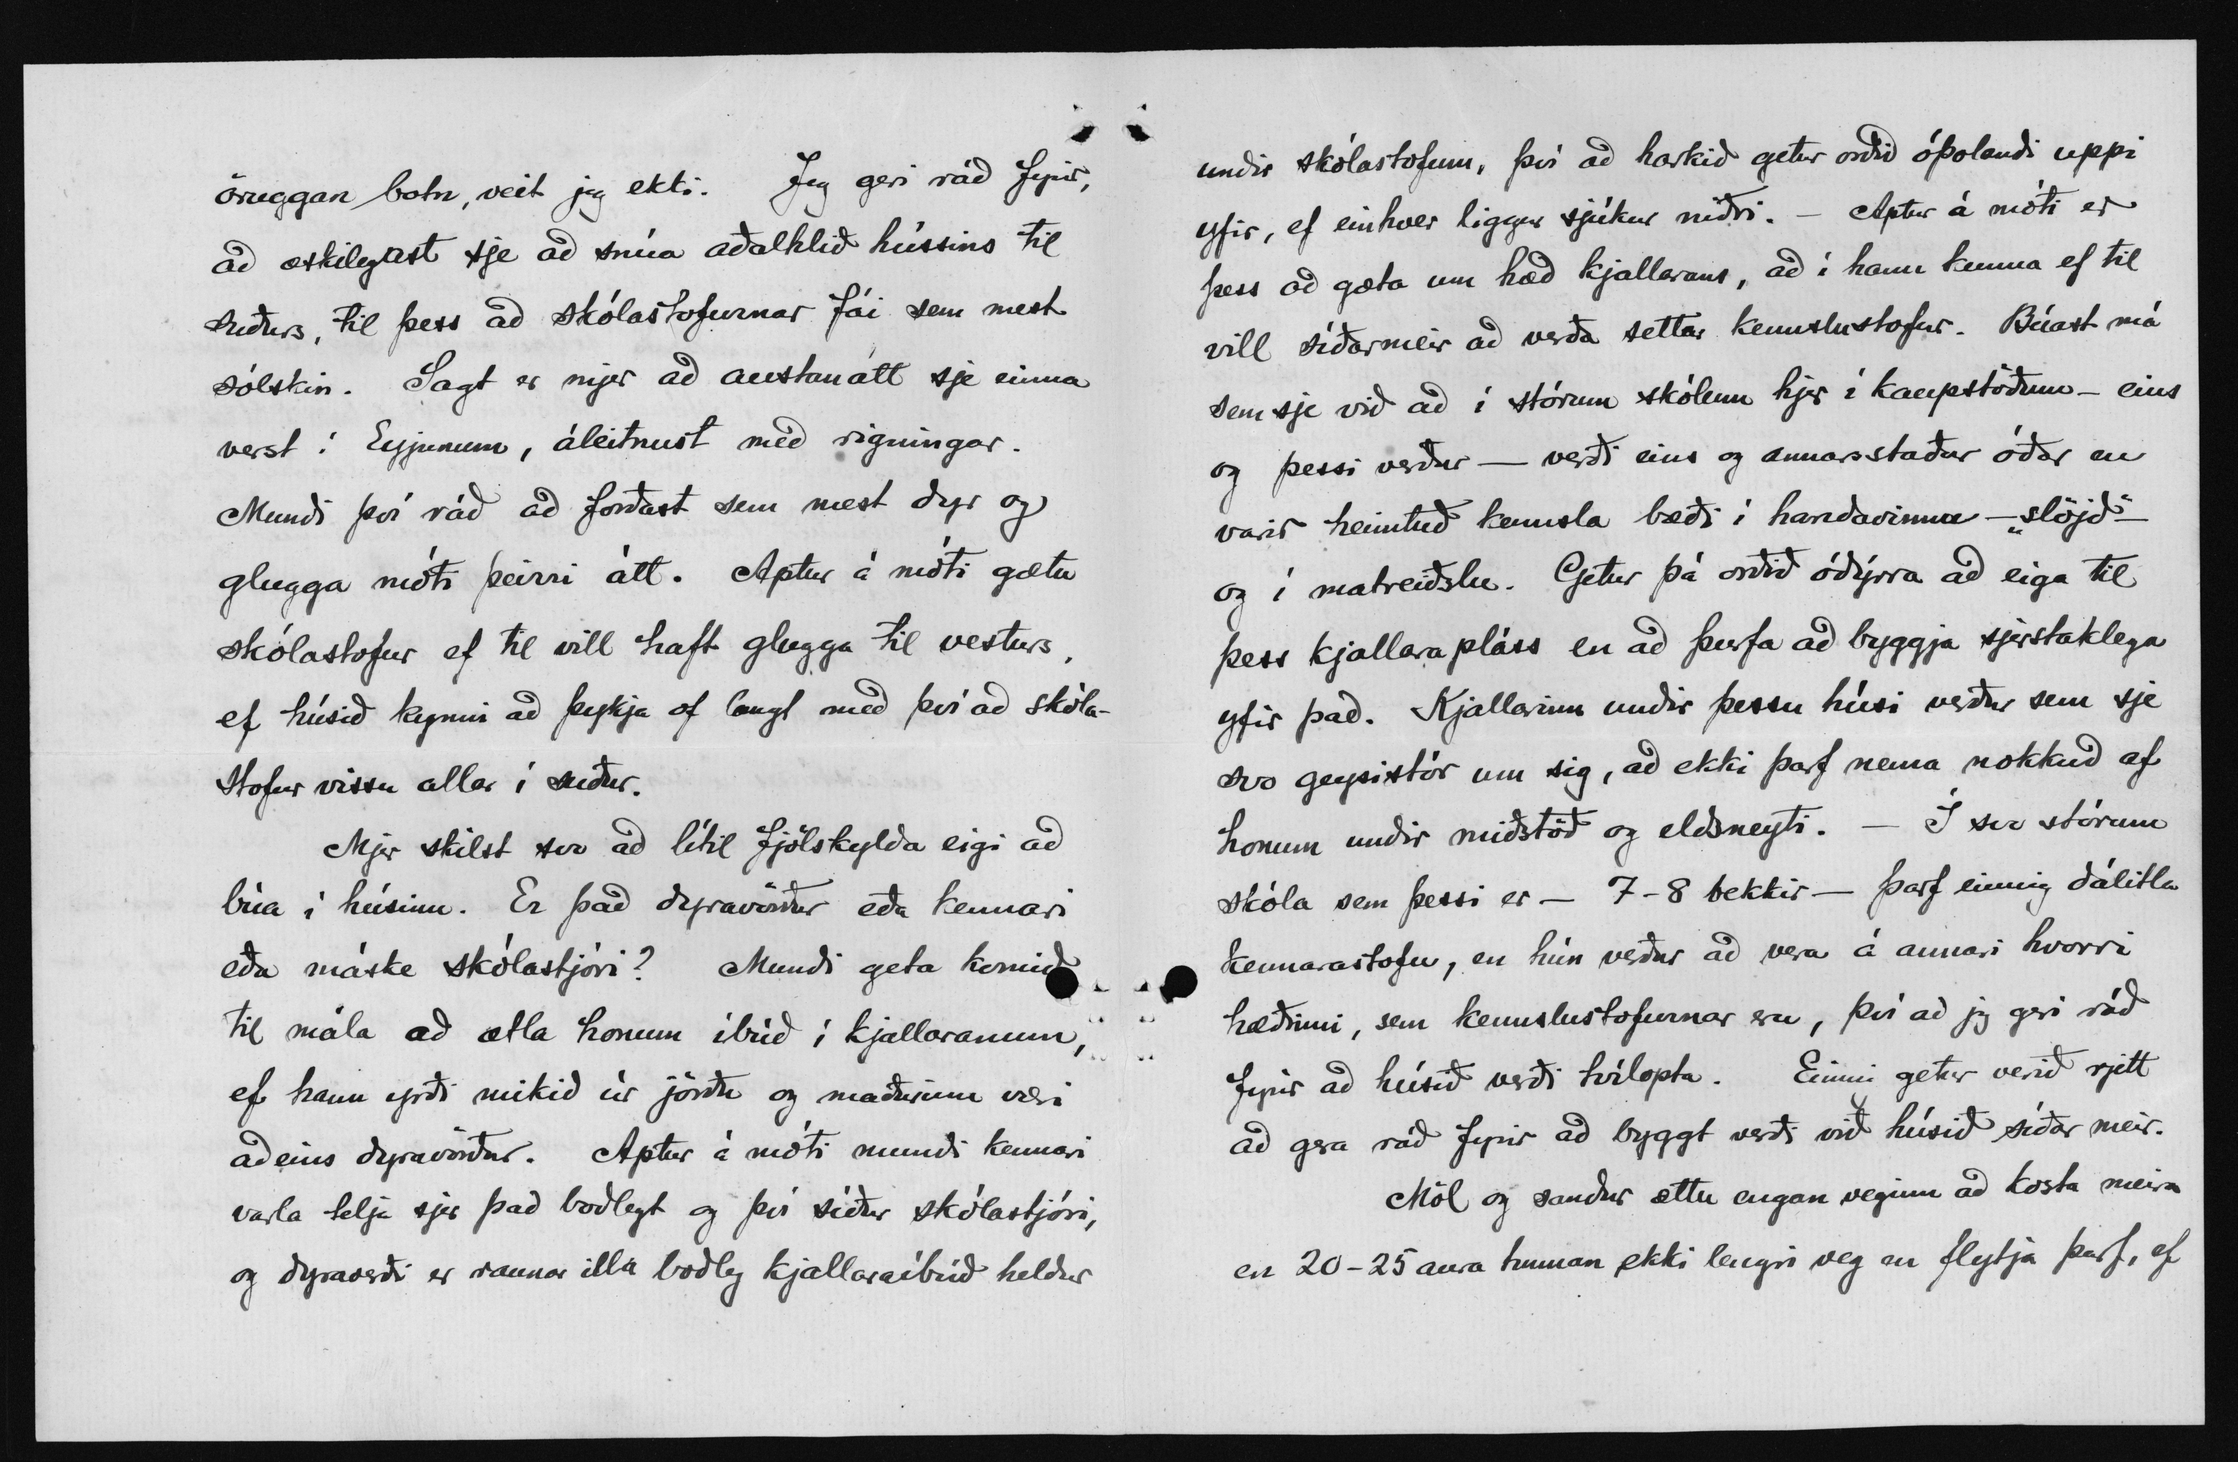 öruggan botn, veit jeg ekki. Jeg geri ráð fyrir,
að æskilegast sje að snúa aðalhlið hússins til
suðurs, til þess að skólastofurnar fái sem mest
sólskin. Sagt er mjer að austanátt sje einna
verst í Eyjunum, áleitnust með rigningar.
Mundi því ráð að forðast sem mest dyr og
glugga móti þeirri átt. Aptur á móti gætu
skólastofur ef til vill haft glugga til vesturs,
ef húsið kynni að þykja of langt með því að skóla-
stofur vissu allar í suður.
Mjer skilst svo að lítil fjölskylda eigi að
búa í húsinu. Er það dyravörður eða kennari
eða máske skólastjóri? Mundi geta komið
til mála að ætla honum íbúð í kjallaranum,
ef hann yrði mikið úr jörðu og maðurinn væri
aðeins dyravörður. Aptur á móti mundi kennari
varla telja sjer það boðlegt og því síður skólastjóri,
og dyraverði er raunar illa boðleg kjallaraíbúð heldur
undir skólastofum, því að harkið getur orðið óþolandi uppi
yfir, ef einhver liggur sjúkur niðri. – Aptur á móti er
þess að gæta um hæð kjallarans, að í hann kunna ef til
vill síðarmeir að verða settar kennslustofur. Búast má
sem sje við að í stórum skólum hjer í kaupstöðum – eins
og þessi verður – verði eins og annarsstaðar óðar en
varir heimtuð kennsla bæði í handavinnu – „slöjd“ –
og í matreiðslu. Getur þá orðið ódýrra að eiga til
þess kjallarapláss en að þurfa að byggja sjerstaklega
yfir það. Kjallarinn undir þessu húsi verður sem sje
svo geysistór um sig, að ekki þarf nema nokkuð af
honum undir miðstöð og eldsneyti. – Í svo stórum
skóla sem þessi er – 7-8 bekkir – þarf einnig dálitla
kennarastofu, en hún verður að vera á annari hvorri
hæðinni, sem kennslustofurnar eru, því að jeg geri ráð
fyrir að húsið verði tvílopta. Einni getur verið rjett
að gera ráð fyrir að byggt verði við húsið síðar meir.
Möl og sandur ættu engan veginn að kosta meira
en 20-25 aura tunnan ekki lengri veg en flytja þarf, ef